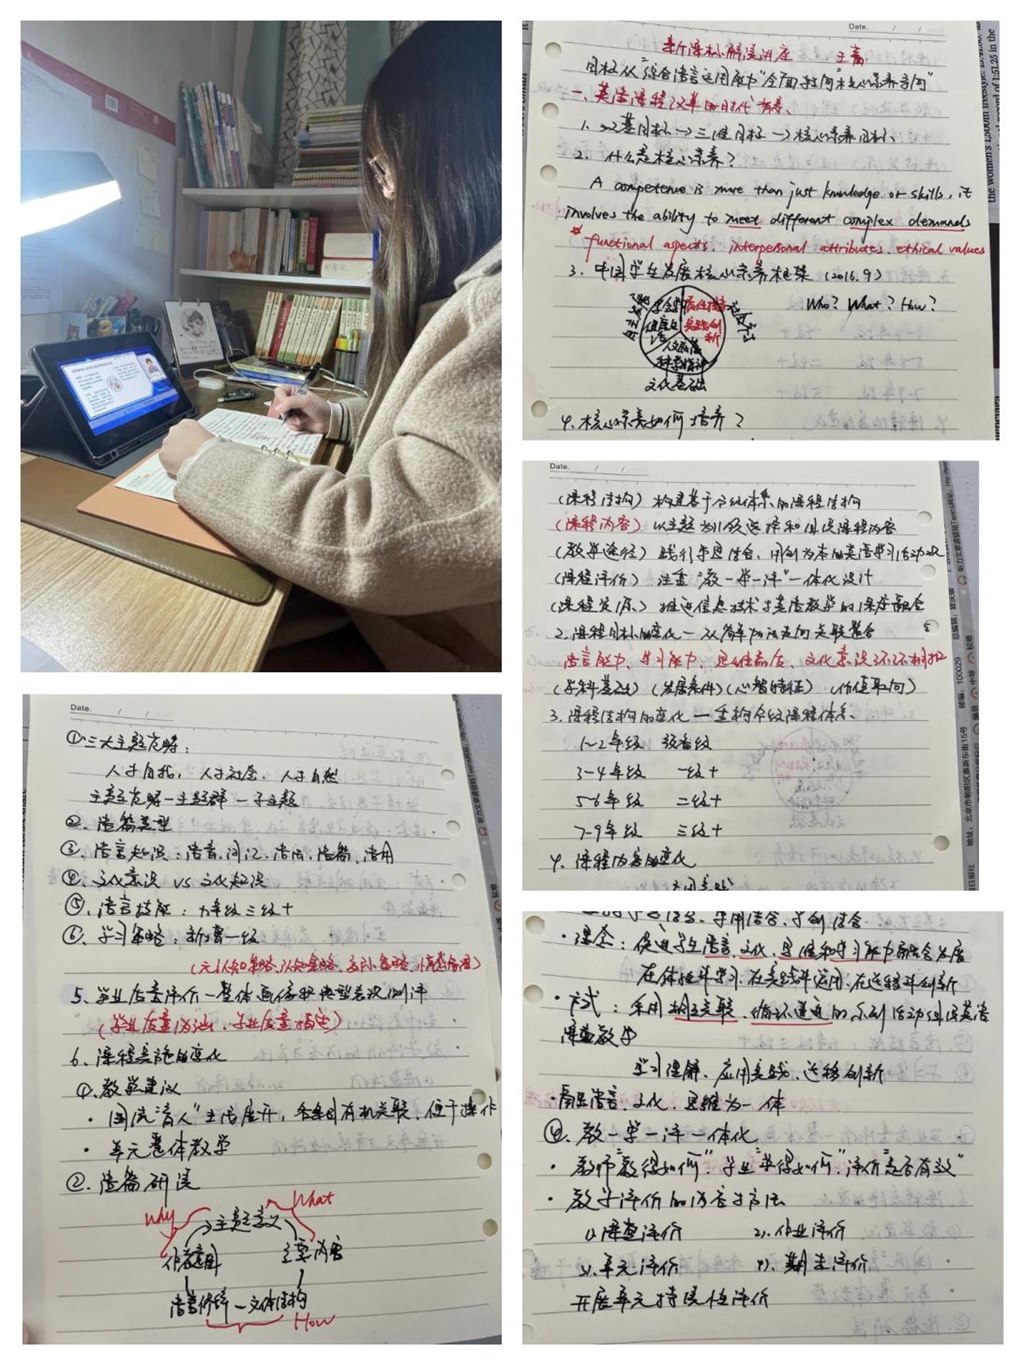 Date.
新课标解读讲座 王蔷
目标从"综合语言运用能力"全面转向"核心素养方向"
一、英语课程改革的时代背景
1. 双基目标→三维目标→核心素养目标
2. 什么是核心素养？
A competence is more than just knowledge or skills, it
involves the ability to meet different complex demands
functional aspects. interpersonal attributes. ethical values
3. 中国学生发展核心素养框架（2016.9）
Who? What? How?
文化基础
4. 核心素养如何培养？
the women's 1,500m freestyle
record of 1:57.25 in the
Date. / /
（课程结构）构建基于分级体系的课程结构
（课程内容）以主题为引领选择和组织课程内容
（教学途径）践行学思结合、用创为本的英语学习活动观
（课程评价）注重"教—学—评"一体化设计
（课程资源）推进信息技术与英语教学的深度融合
2. 课程目标的变化—从简单并列走向关联整合
语言能力、学习能力、思维品质、文化意识环环相扣
（学科基础）（发展条件）（心智特征）（价值取向）
3. 课程结构的变化—重构分级课程体系
1-2年级 预备级
3-4年级 一级+
5-6年级 二级+
7-9年级 三级+
4. 课程内容的变化
地址：北京市朝阳区惠新东街15号
邮编：100029
Date. / /
①三大主题范畴：
人与自我，人与社会，人与自然
主题范畴—主题群—子主题
②. 语篇类型
③. 语言知识：语音、词汇、语法、语篇、语用
④. 文化意识 VS 文化知识
⑤. 语言技能：九年级三级+
⑥. 学习策略：新增一级
（元认知策略，认知策略，交际策略，情感管理）
5. 学业质量评价—整体画像和典型表现测评
（学业质量内涵，学业质量描述）
6. 课程实施的变化
①. 教学建议
· 围绕"育人"主线展开，各条目有机关联，便于操作
· 单元整体教学
②. 语篇研读
Why What
主题意义
作者意图 主要内容
语言修辞—文体结构
How
· 理念：促进学生语言、文化、思维和学习能力融合发展
在体验中学习、在实践中运用、在迁移中创新
· 方式：采用相互关联、循环递进的系列活动组织英语
课堂教学
学习理解、应用实践、迁移创新
语言、文化、思维为一体
④. 教—学—评一体化
· 教师"教得如何"，学生"学得如何"，评价"是否有效"
· 教学评价的内容与方法
1). 课堂评价 2). 作业评价
3). 单元评价 4). 期末评价
开展单元持续性评价